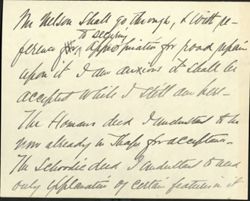 Mr Nelson shall go through, & with re-
to securing
ference appropriation for road again
upon it I am anxious it shall be
accepted while I still am here -
The Homans deed I understand to be
now already in shape for acceptance.
The Schoodic deed I understand to need
only explanation of certain features in it